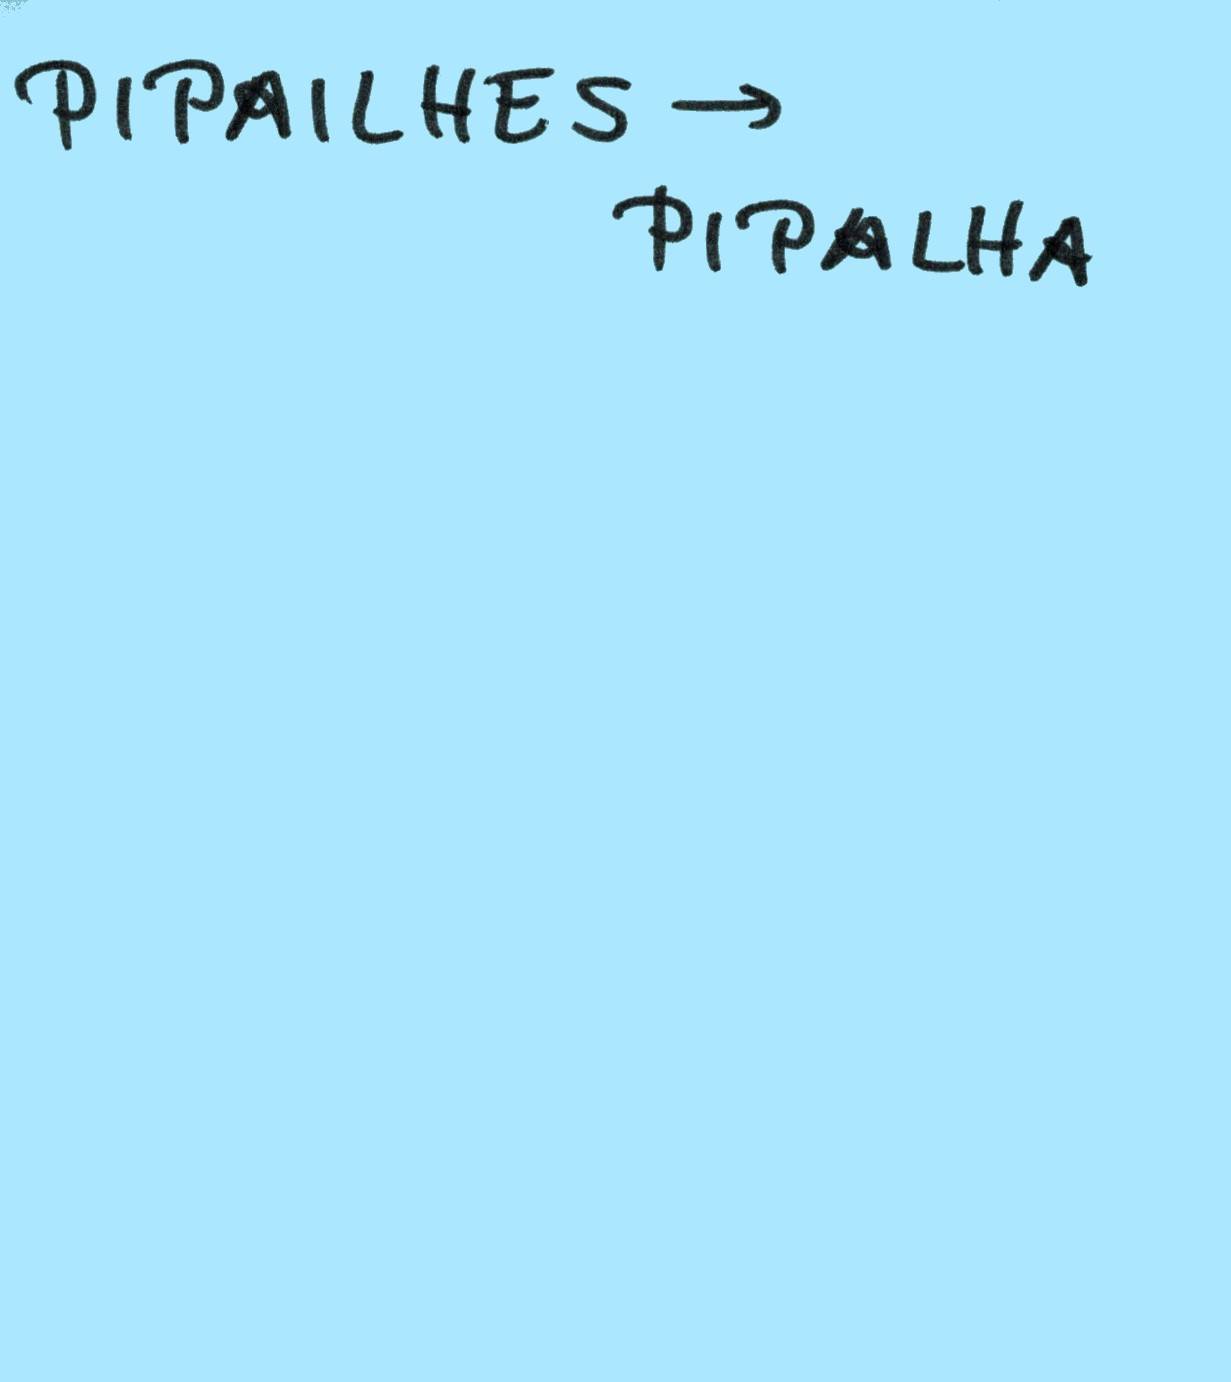 PIPAILHES →
PIPALHA